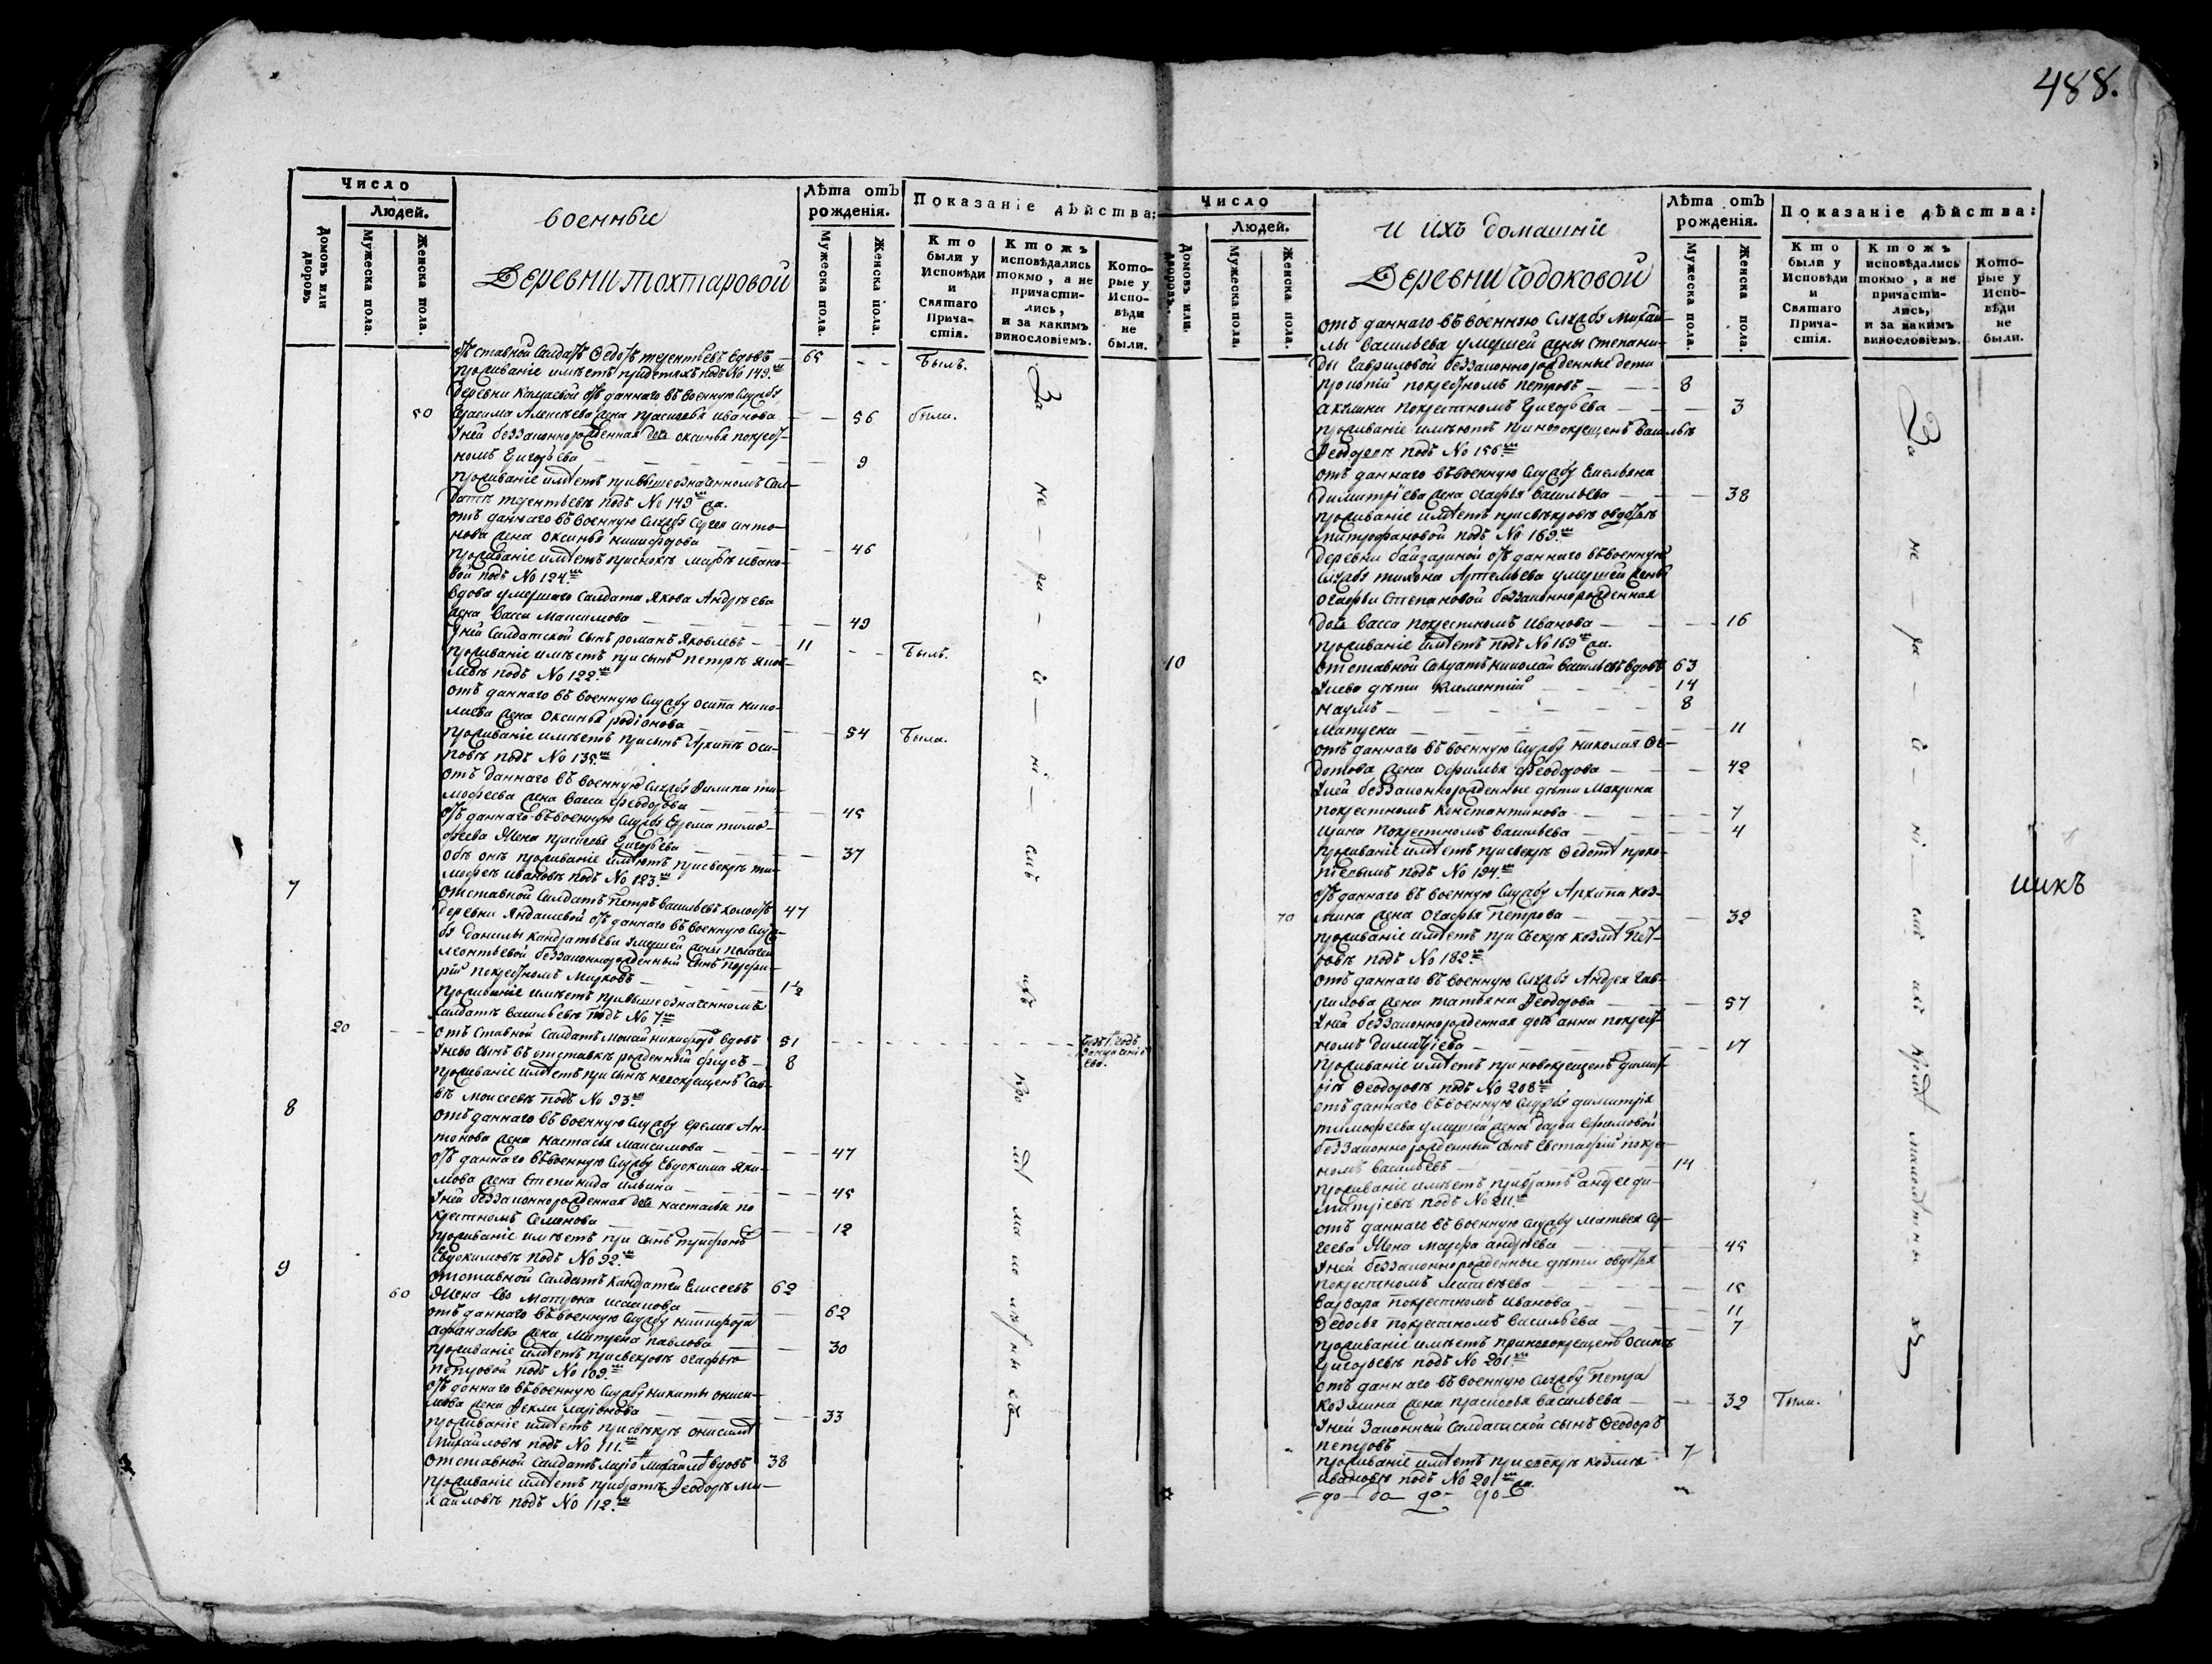 488.
Число
Людей.
Домовъ или дворовъ
Мужеска пола.
Женска пола.
военные
Деревни Тохтаровой
Лѣта отъ рожденія.
Мужеска пола.
Женска пола.
Показаніе дѣйства:
Кто были у Исповѣди и Святаго Причастія.
Ктожъ исповѣдались токмо, а не причастились, и за какимъ винословіемъ.
Которые у Исповѣди не были.
отставной Салдатъ Федотъ терентьевъ вдовъ — 65 — — Былъ.
проживаніе имѣетъ при детяхъ подъ № 149.м
деревни отъ даннаго въ военную Службу
50 Герасима Алексеева жена прасковья иванова — — 56 были.
Уней беззаконнорожденная дочь оксинья покрест-
номъ Григорьева — — 9
проживаніе имѣетъ при вышеозначенномъ Сал-
датѣ терентьевѣ подъ № 149 м
отъ даннаго въ военную Службу Сергея анто-
нова жена оксинья никифорова — — 46
проживаніе имѣетъ при снохѣ марѣѣ ивано-
вой подъ № 124.м
вдова умершаго Салдата Якова Андрѣева
жена Васса Максимова — — 49
Уней Салдатской сынъ романъ Яковлевъ — 11 — — Былъ.
проживаніе имѣетъ при сынѣ петрѣ яков-
левѣ подъ № 122.м
отъ даннаго въ военную Службу осипа нико-
лаева жена оксинья родіонова — — 54 Была.
проживаніе имѣетъ при сынѣ Архипѣ оси-
повѣ подъ № 135.м
отъ даннаго въ военную Службу Филипа ти-
мофеева жена Васса Феодорова — — 45
отъ даннаго въ военную Службу Ефрема тимо-
феева Жена прасковья Григорьева — — 37
обѣ онѣ проживаніе имѣютъ при свекрѣ ти-
мофеѣ ивановѣ подъ № 123.м
7 отставной Салдатъ Петръ Васильевъ холостъ 47
деревни Яндашевой отъ даннаго въ военную Служ-
бу данилы кандратьева умершей жены пелагеи
леонтьевой беззаконнорожденный Сынъ Порфи-
рій покрестномъ Марковъ — 1½
проживаніе имѣетъ при вышеозначенномъ
Салдатѣ Васильевѣ подъ № 7.м
20 отъ Ставной Салдатъ моисей никифоровъ вдовъ 51
Унево Сынъ въ отставкѣ рожденный — 8
проживаніе имѣетъ при сынѣ новокрещенѣ Сав-
вѣ моисеевѣ подъ № 93.м
8 отъ даннаго въ военную Службу еремея Ан-
тонова жена настасья максимова — — 47
отъ даннаго въ военную Службу Евдокима Яки-
мова жена Степанида ильина — — 45
Уней беззаконнорожденная дочь настасья по
крестномъ Семенова — — 12
проживаніе имѣетъ при сынѣ трифонѣ
Евдокимовѣ подъ № 92.м
9 отставной Салдатъ Кандратей Елисеевъ 62
60 Жена Ево Матрона исаакова — 62
отъ даннаго въ военную Службу никифора
афанасьева жена Матрена павлова — — 30
проживаніе имѣетъ при свекровѣ огафьѣ
петровой подъ № 109.м
отъ даннаго въ военную Службу никиты ониси-
мова жена Фекла ларіонова — — 33
проживаніе имѣетъ при свѣкрѣ онисимѣ
михайловѣ подъ № 111.м
отставной Салдатъ ларіонъ михайловъ вдовъ 38
проживаніе имѣетъ при братѣ Феодорѣ ми-
хайловѣ подъ № 112.м
За не-ра-
Число
Людей.
Домовъ или дворовъ.
Мужеска пола.
Женска пола.
и ихъ домашніе
Деревни Чодоковой
Лѣта отъ рожденія.
Мужеска пола.
Женска пола.
Показаніе дѣйства:
Кто были у Исповѣди и Святаго Причастія.
Ктожъ исповѣдались токмо, а не причастились, и за какимъ винословіемъ.
Которые у Исповѣди не были.
отъ даннаго въ военную Службу Михаи-
лы Васильева умершей жены Степани-
ды Гавриловой беззаконнорожденные дети
покрестномъ петровъ — 8
акулина покрестномъ Григорьева — — 3
проживаніе имѣютъ при новокрещенѣ Васильѣ
Феодоровѣ подъ № 156.м
отъ даннаго въ военную Службу Емельяна
димитріева жена огафья васильева — — 38
проживаніе имѣетъ при свѣкровѣ овдотьѣ
митрофановой подъ № 169.м
деревни отъ даннаго въ военную
Службу тихона Артемьева умершей жены
огафьи Степановой беззаконнорожденная
дочь Васса покрестномъ Иванова — — 16
проживаніе имѣетъ подъ № 169 м
10 отставной Салдатъ николай васильевъ вдовъ 63
Унево дѣти Климентій — 14
наумъ — 8
матрена — — 11
отъ даннаго въ военную Службу николая Фе-
дотова жена офимья Феодорова — — 42
Уней беззаконнорожденные дѣти Макрина
покрестномъ Константинова — — 7
ирина покрестномъ Васильева — — 4
проживаніе имѣетъ при свекрѣ Федотѣ проко-
пьевымъ подъ № 194.м
отъ даннаго въ военную Службу Архипа коз-
70 мина жена огафья Петрова — — 32
проживаніе имѣетъ при Свекрѣ козмѣ Пет-
ровѣ подъ № 182.м
отъ даннаго въ военную Службу Андрея гав-
рилова жена татьяна Феодорова — — 57
Уней беззаконнорожденная дочь анна покрест-
номъ димитріева — — 17
проживаніе имѣетъ при новокрещенѣ димит-
ріѣ Феодоровѣ подъ № 208 м
отъ даннаго въ военную Службу димитрія
тимофеева умершей жены дарьи Ефимовой
беззаконнорожденный сынъ Евстафій покрест-
номъ Васильевъ — 14
проживаніе имѣетъ при братѣ андреѣ ди-
митріевѣ подъ № 211.м
отъ даннаго въ военную Службу матвея Сер-
геева Жена марфа андрѣева — — 45
Уней беззаконнорожденные дѣти овдотья
покрестномъ Матвѣева — — 15
Варвара покрестномъ Иванова — — 11
Федосья покрестномъ Васильева — — 7
проживаніе имѣетъ при новокрещенѣ осипѣ
Григорьевѣ подъ № 201.м
отъ даннаго въ военную Службу Петра
козмина жена прасковья Васильева — — 32 Были.
Уней Законный Салдатской сынъ Феодоръ
петровъ 7
проживаніе имѣетъ при свекрѣ козмѣ
ивановѣ подъ № 201 м
За не-ра-
никъ